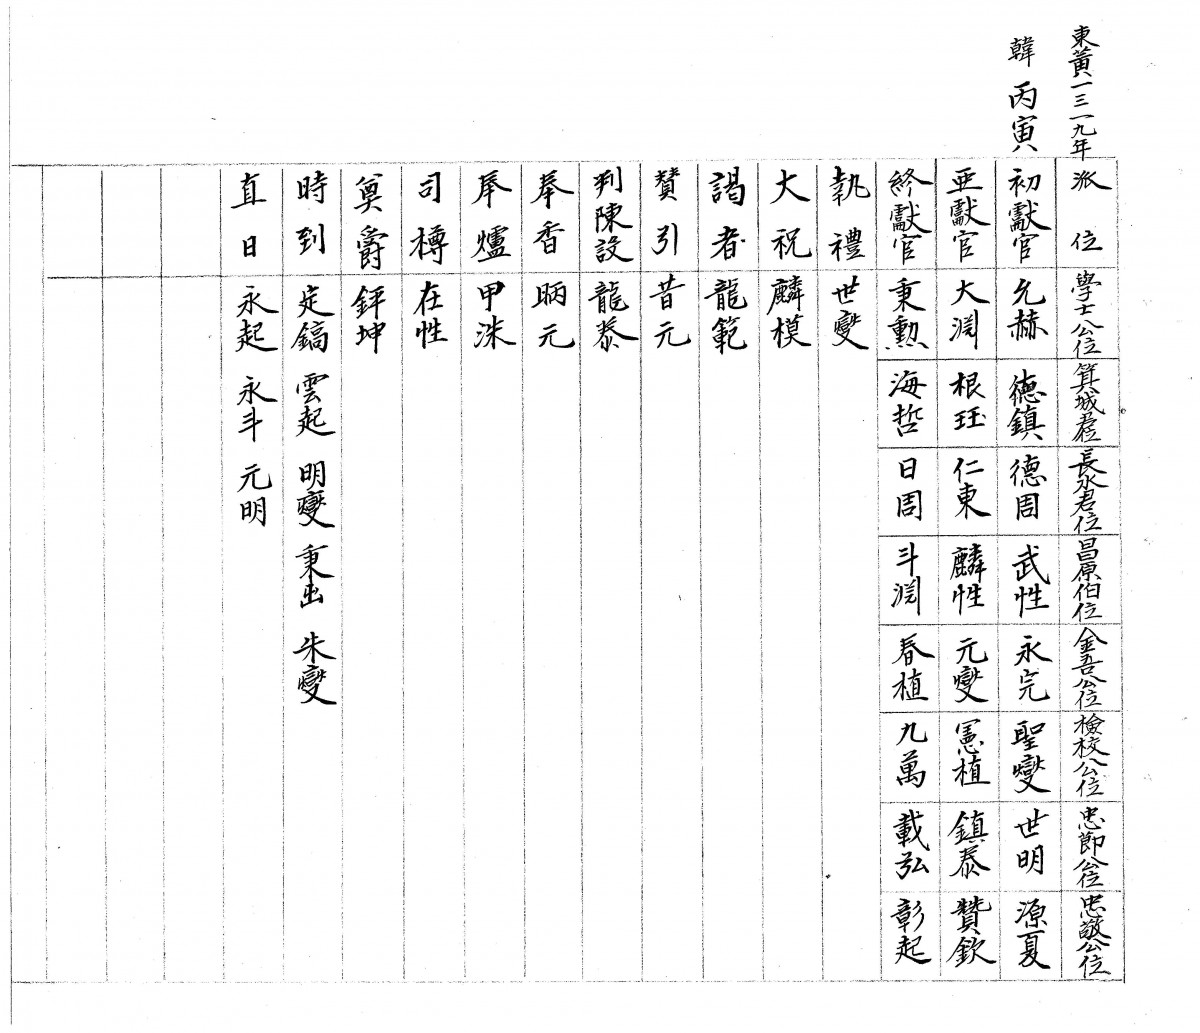 東黃一三一九年
韓 丙寅
派位 學士公位 箕城君位 長水君位 昌原伯位 金吾公位 檢校公位 忠節公位 忠敬公位
初獻官 允赫 德鎮 德周 武性 永完 聖變 世明 源夏
亞獻官 大渊 根珏 仁東 麟性 元變 憲植 鎮泰 贊欽
終獻官 秉勲 海哲 日周 斗渕 春植 九萬 載弘 彰起
執禮 世變
大祝 麟模
謁者 龍範
贊引 昔元
判陳設 龍泰
奉香 昞元
奉爐 甲洙
司樽 在性
奠爵 鉀坤
時到 定鎬 雲起 明變 秉出 朱變
直日 永起 永斗 元明